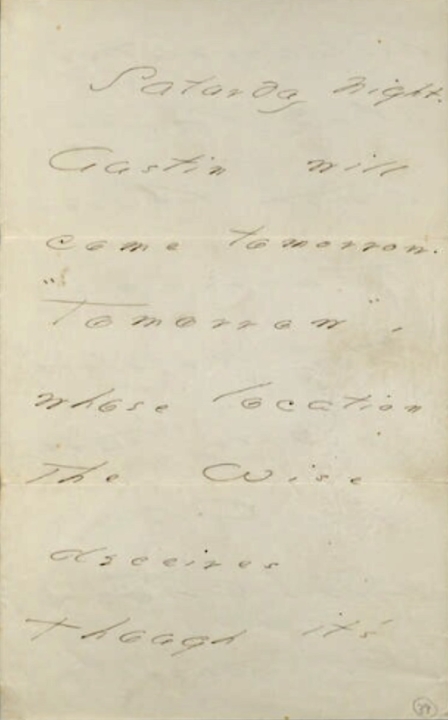 Saturday night.
Austin will
come tomorrow.
"Tomorrow",
whose location
The Wise
deceives
Though it's